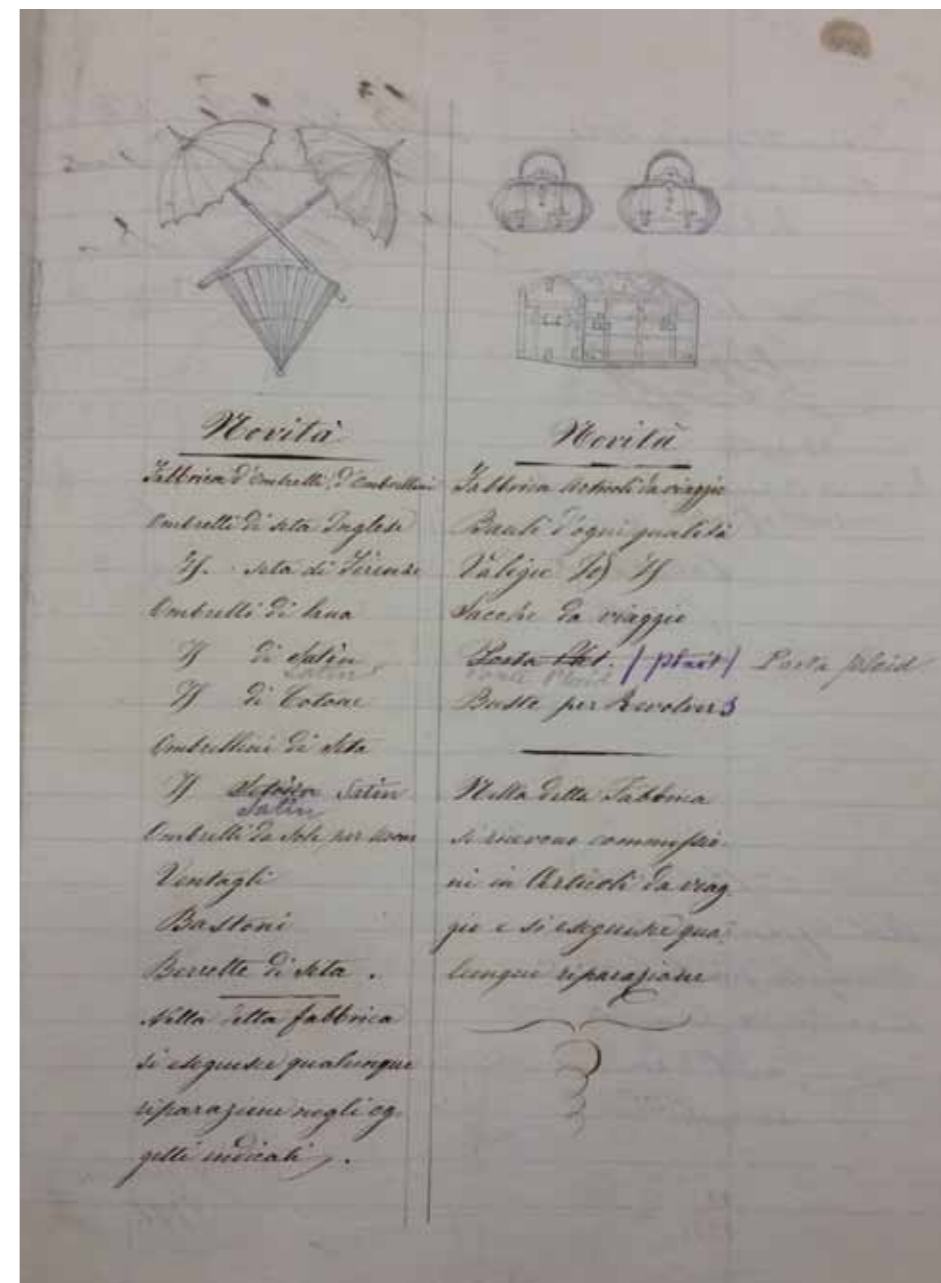 Novità
Fabbrica d'Ombrelli, d'Ombrellini
Ombrelli di seta Inglese
Id. seta di Firenze
Ombrelli di lana
Id di Satin
Satin
Id di Cotone
Ombrellini di seta
Id Satin
Satin
Ombrelli da Sole per uomo
Ventagli
Bastoni
Berrette di seta.
Nella detta fabbrica
si eseguisce qualunque
riparazione negli og-
getti indicati.
Novità
Fabbrica Articoli da viaggio
Bauli d'ogni qualità
Valigie Id Id
Sacche da viaggio
Porta (plaid) Porta plaid
Porta Plaid
Buste per Revolvers
Nella detta Fabbrica
si ricevono commissio-
ni in Articoli da viag-
gio e si eseguisce qua-
lunque riparazione